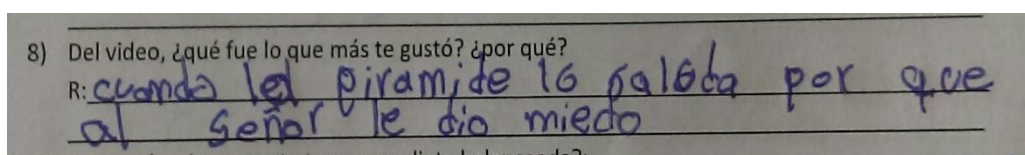 8) Del video, ¿qué fue lo que más te gustó? ¿por qué?
R: cuando la piramide lo salola por que
al señor le dio miedo